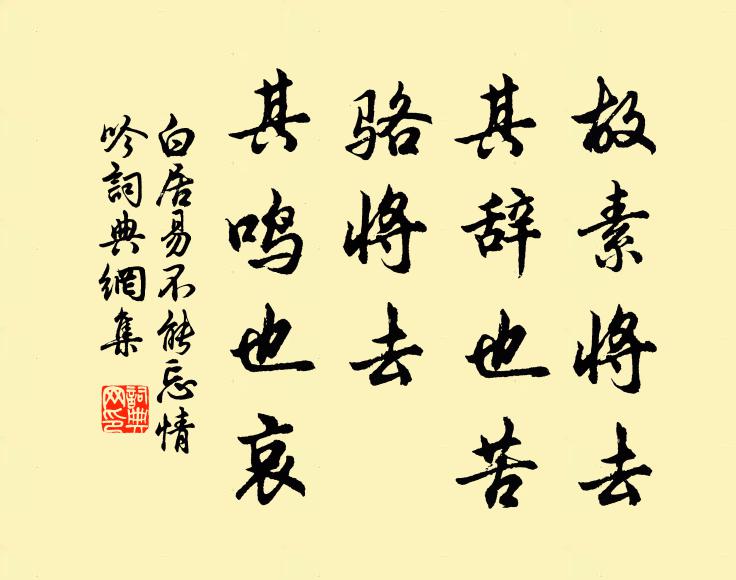 故素将去
其辞也苦
骆将去
其鸣也哀
白居易不能忘情
吟詞典網集
詞典
网印